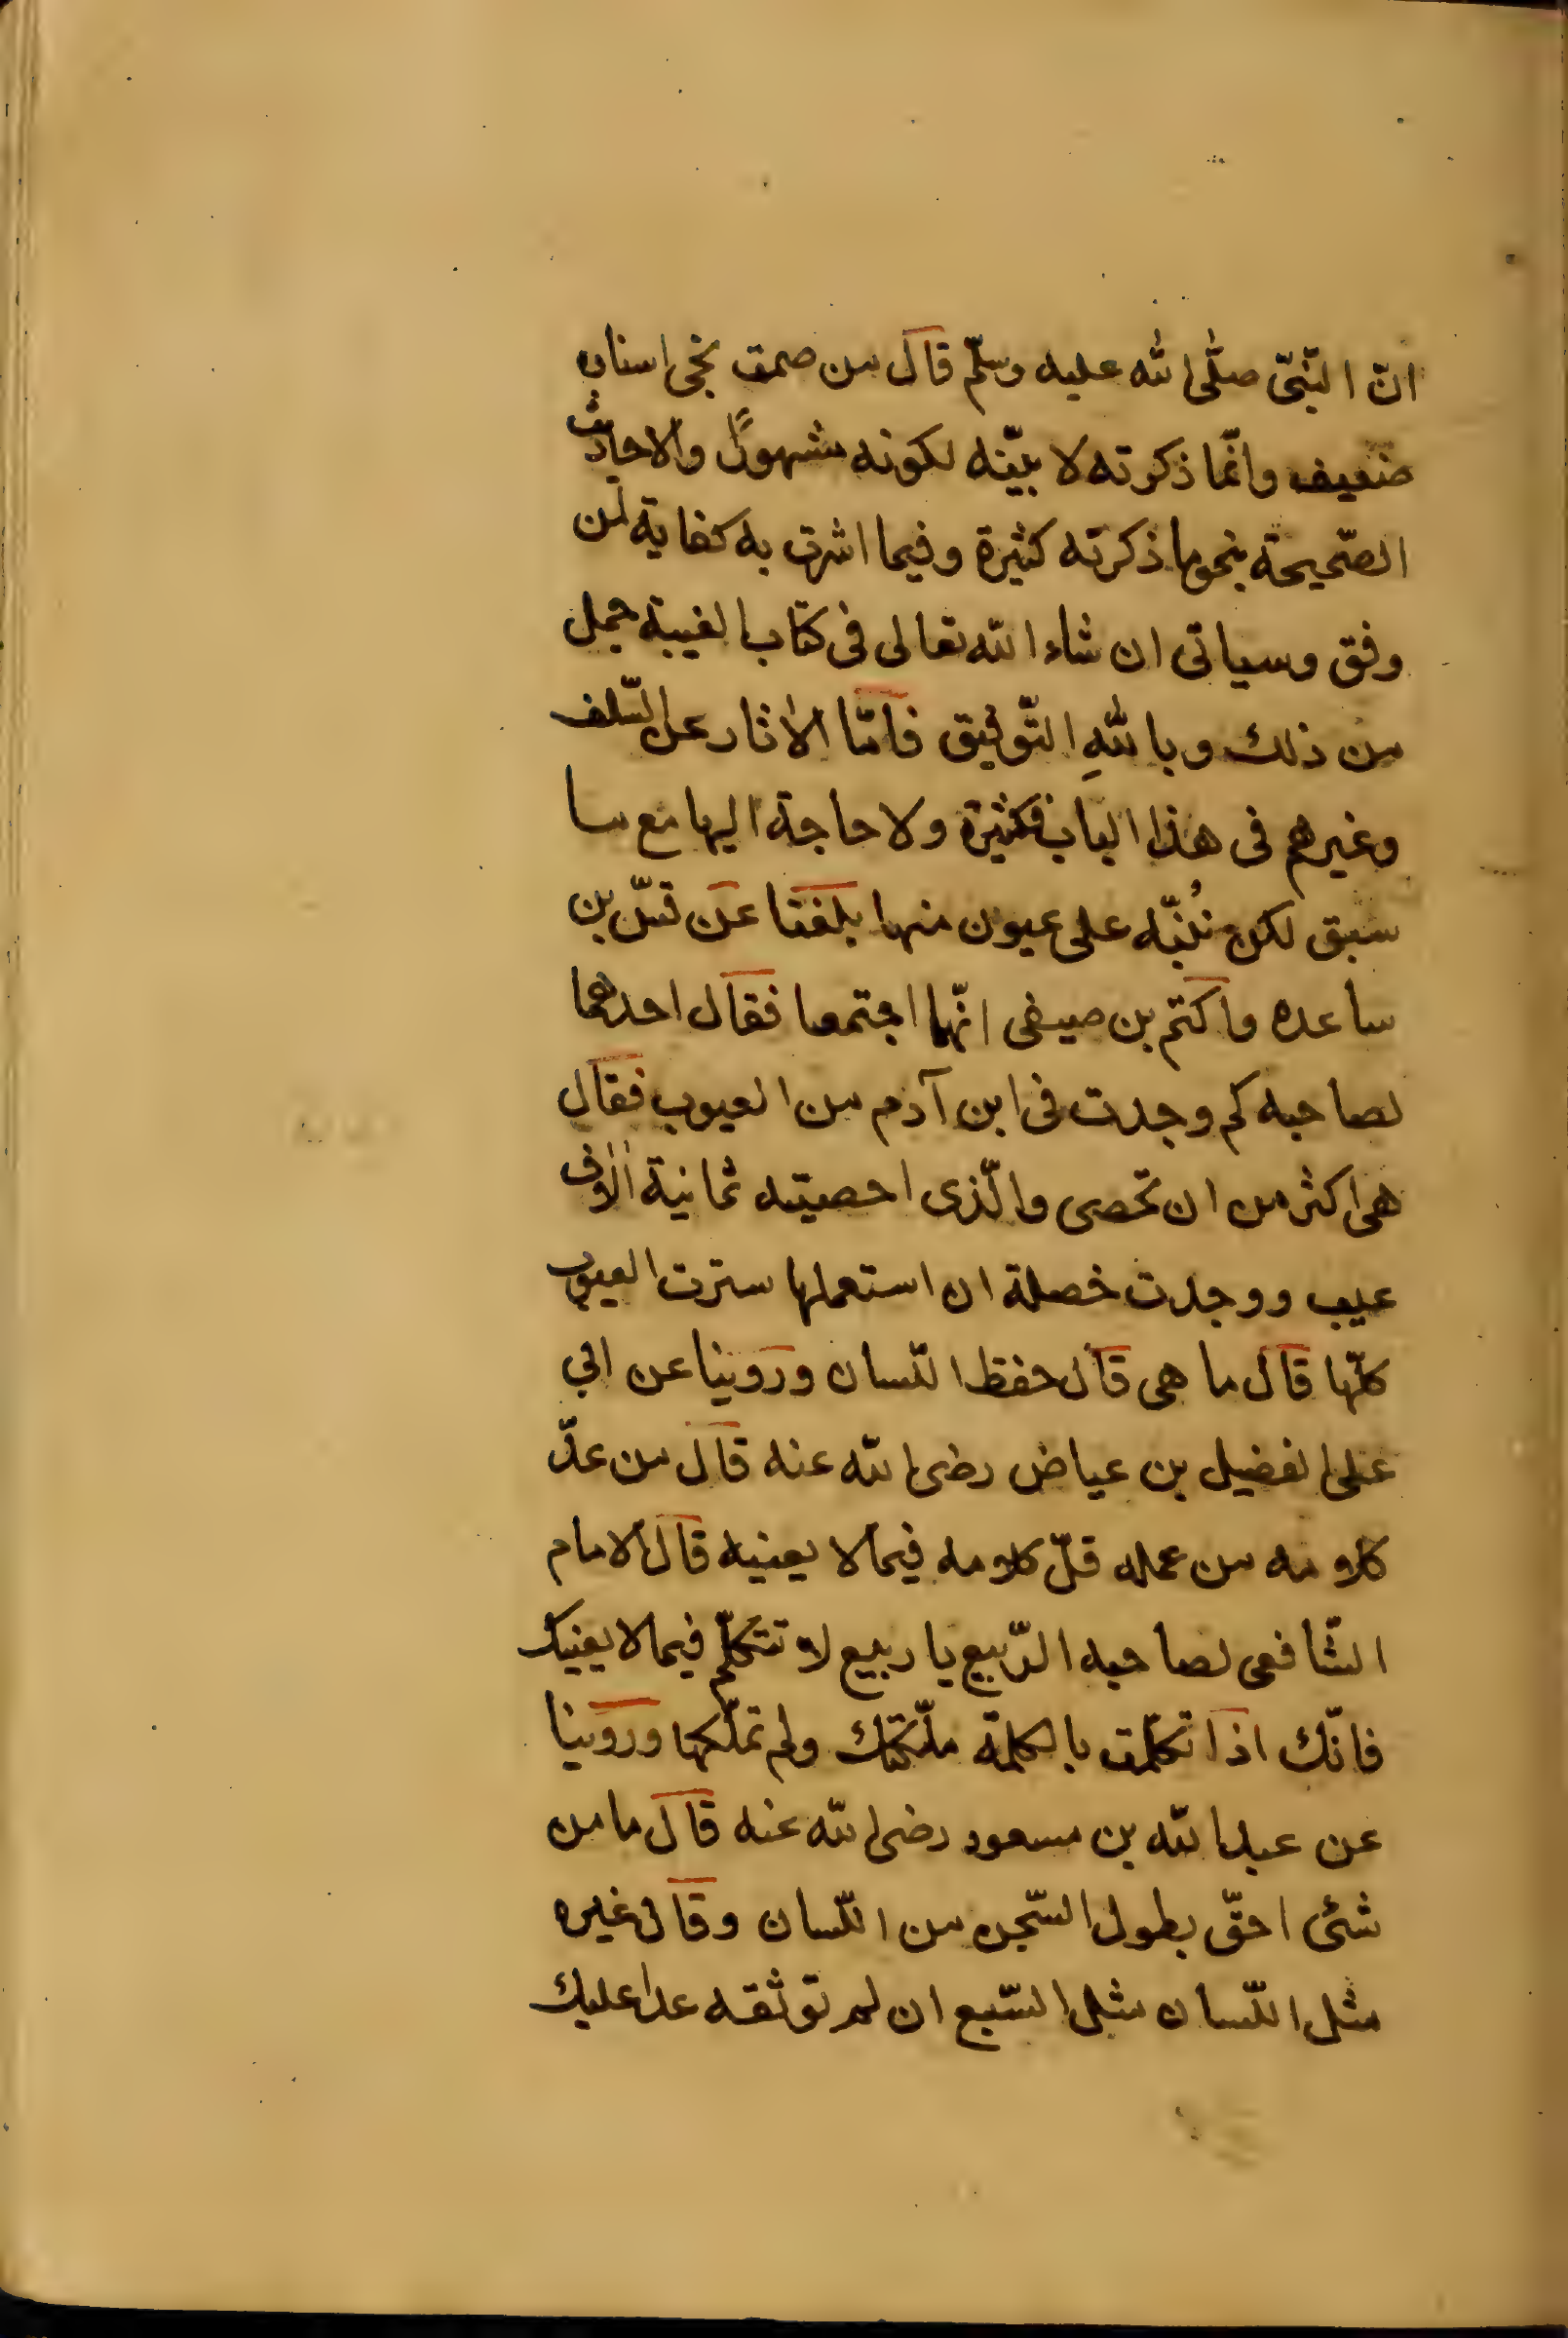 انّ النّبىّ صلّى الله عليه وسلّم قال من صمت نجى اسناده
ضعيف وانّما ذكرته لا بيّنه لكونه مشهورًا والاحاديث
الصّحيحة بنحو ما ذكرته كثيرة وفيما اشرت به كفاية لمن
وفق وسياتى ان شاء الله تعالى فى كتاب الغيبة جمل
من ذلك وباللهِ التّوفيق فامّا الاثار عن السّلف
وغيرهم فى هذا الباب فكثيرة ولا حاجة اليها مع ما
سبق لكن نُنبّه على عيون منها بلغنا عن قسّ بن
ساعده واكتم بن صيفى انّهما اجتمعا فقال احدهما
لصاحبه كم وجدت فى ابن آدم من العيوب فقال
هى اكثر من ان تحصى والّذى احصيته ثمانية الاف
عيب ووجدت خصلة ان استعملها سترت العيوب
كلّها قال ما هى قال حفظ اللّسان وروينا عن ابي
على الفضيل بن عياض رضى الله عنه قال من عدّ
كلامه من عمله قلّ كلامه فيما لا يعنيه قال الامام
الشّافعى لصاحبه الرّبيع يا ربيع لا تتكلّم فيما لا يعنيك
فانّك اذا تكلّمت بالكلمة ملّكتك ولم تملّكها وروينا
عن عبد الله بن مسعود رضى الله عنه قال ما من
شئى احقّ بطول السّجن من اللّسان وقال غيره
مثل اللّسان مثل السّبع ان لم توثقه عدا عليك